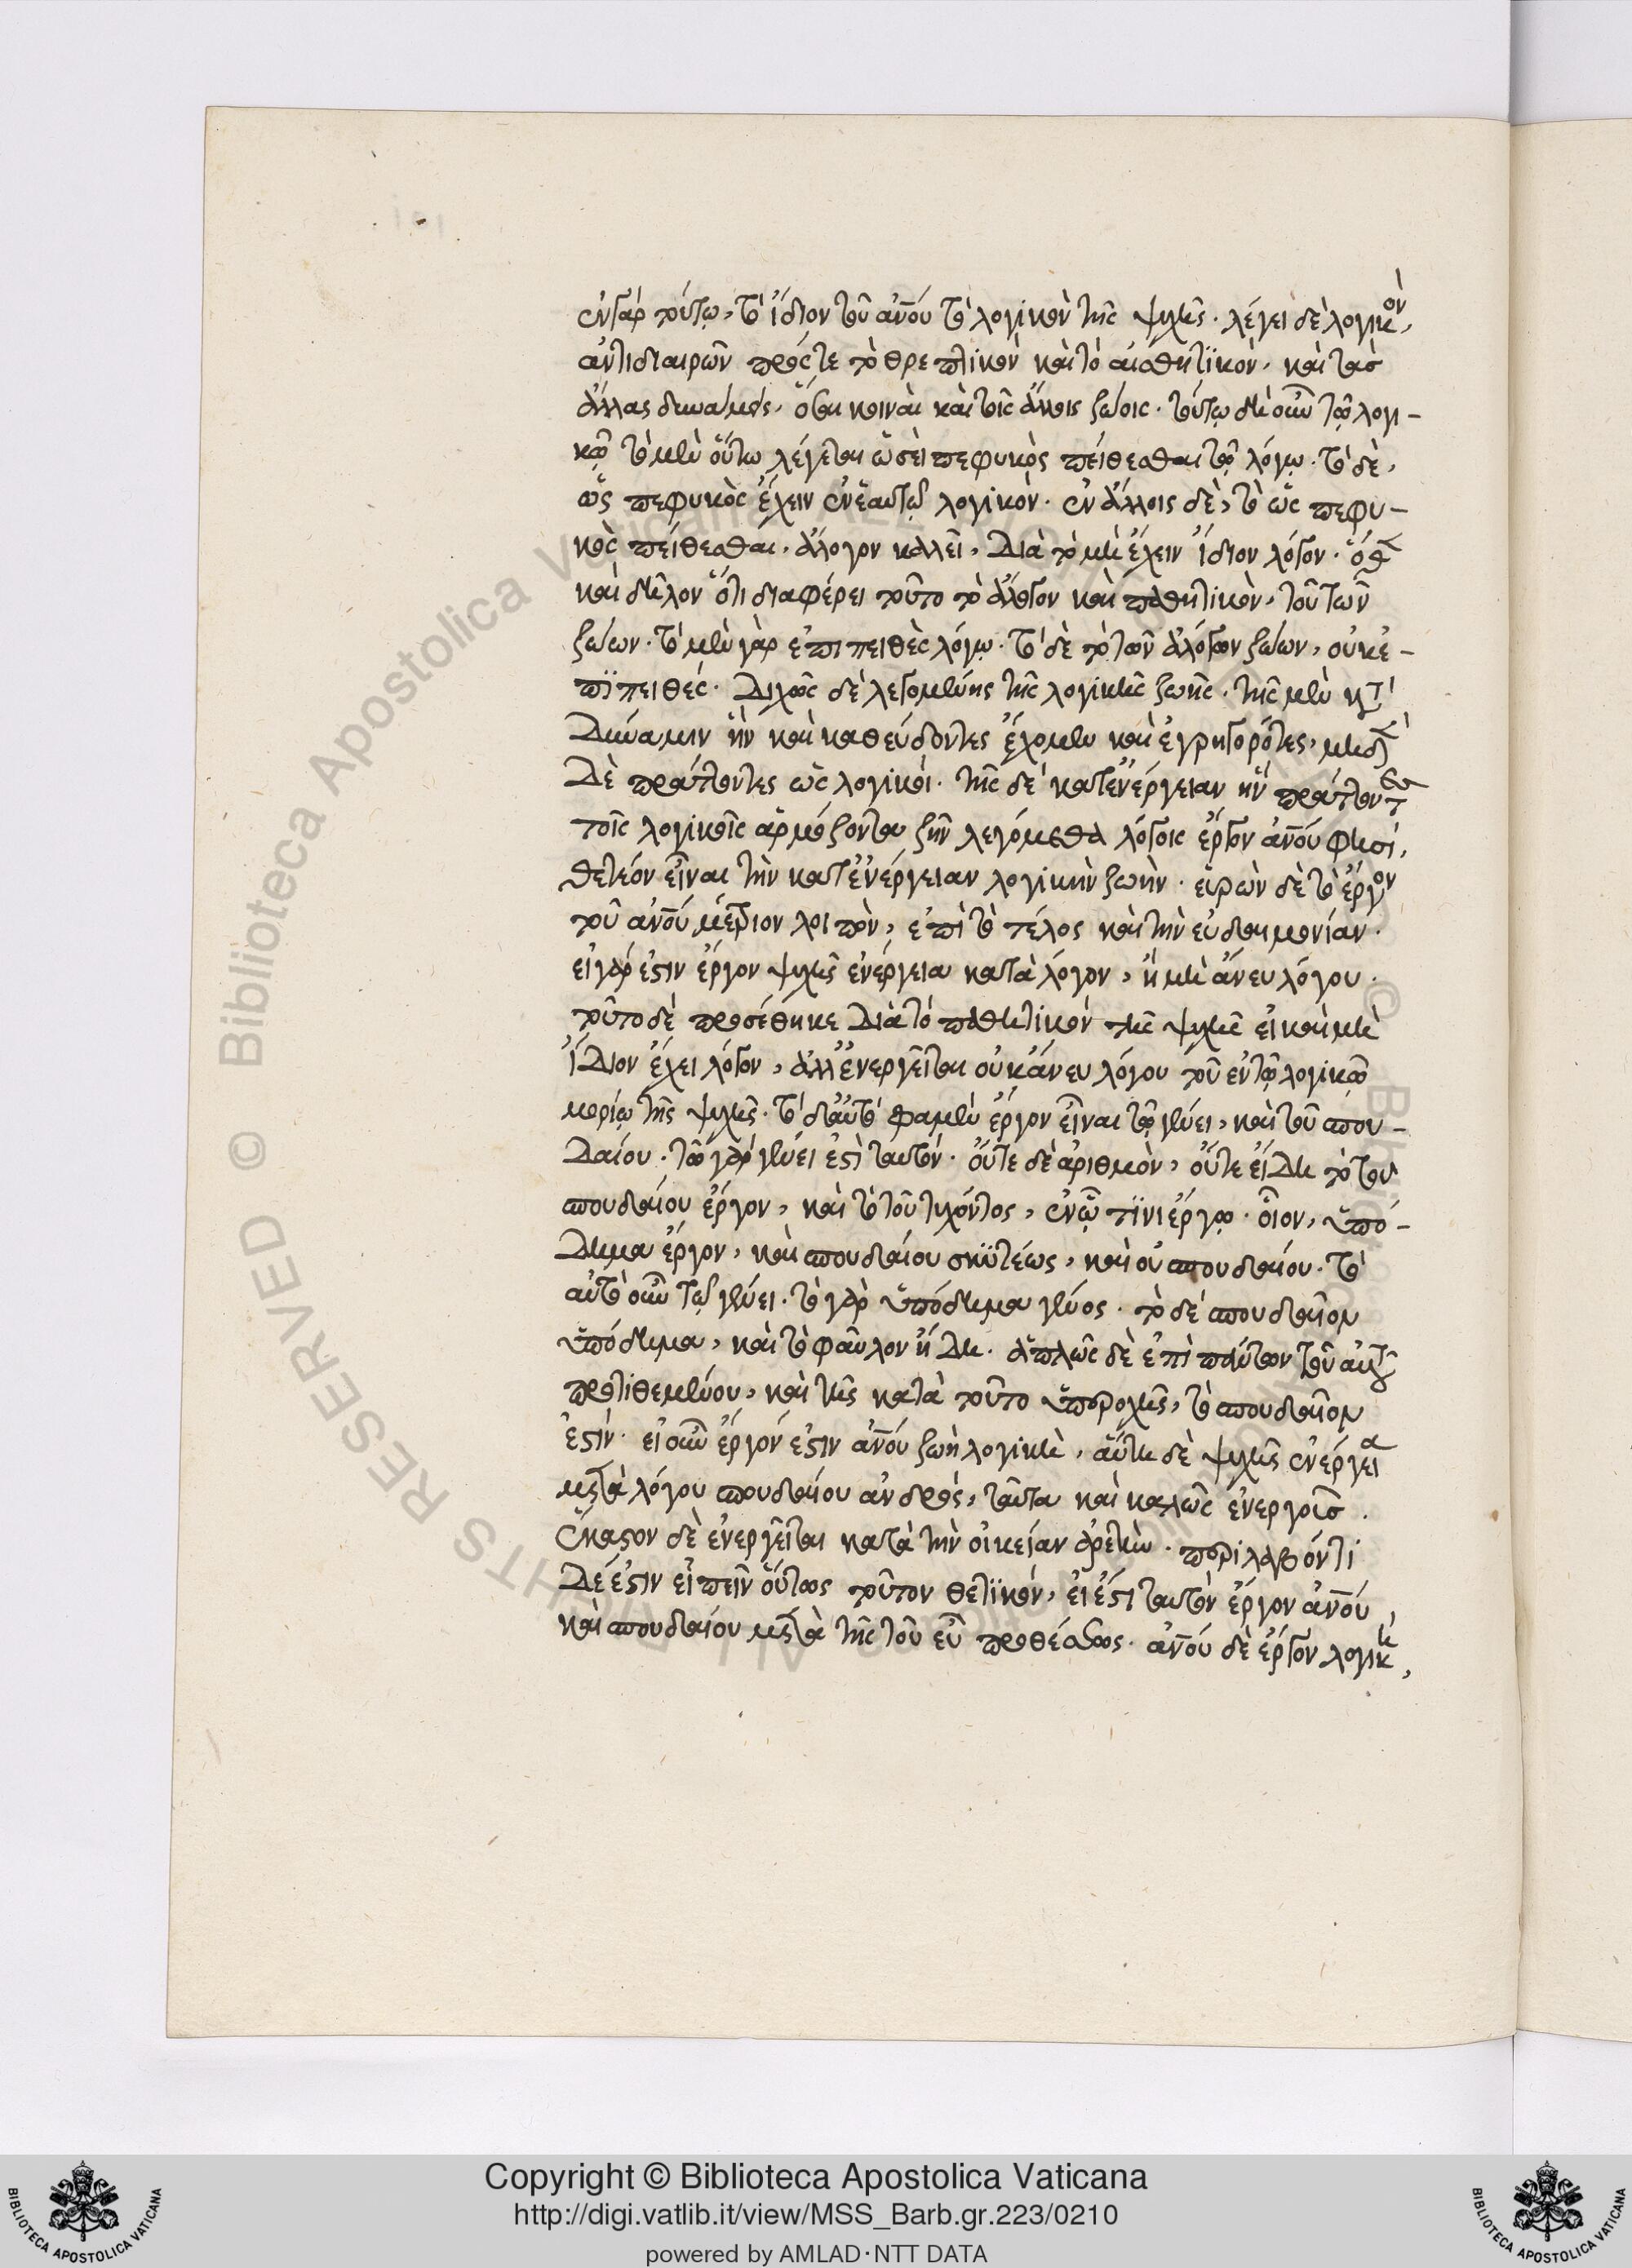 ἐν γὰρ τούτω, τὸ ἴδιον τοῦ ἀν̅ου τὸ λογικὸν τῆς ψυχῆς. λέγει δὲ λογικὸν,
ἀντιδιαιρῶν πρός τε τὸ θρεπτικὸν καὶ τὸ αἰσθητικὸν, καὶ τὰσ
ἄλλας δυνάμεις, ὅσαι κοιναὶ καὶ τοῖς ἄλλοις ζώοις. τούτω δὴ οὖν τῶ λογι-
κῶ τὸ μὲν οὕτω λέγεται ὡσεὶ πεφυκὸς πείθεσθαι τῶ λόγω. τὸ δὲ,
ὡς πεφυκὸς ἔχειν ἐν ἑαυτῶ λογικόν. ἐν ἄλλοις δὲ, τὸ ὡς πεφυ-
κὸς πείθεσθαι, ἄλογον καλεῖ, διὰ τὸ μὴ ἔχειν ἴδιον λόγον. ὅθεν
καὶ δῆλον ὅτι διαφέρει τοῦτο τὸ ἄλογον καὶ παθητικὸν, τοῦ τῶν
ζώων. τὸ μὲν γὰρ ἐπιπειθὲς λόγω. τὸ δὲ τὸ τῶν ἀλόγων ζώων, οὐκ ἐ-
πϊπειθές. διχῶς δὲ λεγομένης τῆς λογικῆς ζωῆς. τῆς μὲν κατὰ
δύναμιν ἣν καὶ καθεύδοντες ἔχομεν καὶ ἐγρηγορότες, μηδὲν
δὲ πράττοντες ὡς λογικοί. τῆς δὲ κατ' ἐνέργειαν ἣν πράττοντες
τοῖς λογικοῖς ἁρμόζοντα ζῆν λεγόμεθα λόγοις ἔργον ἀν̅ου φησί,
θετέον εἶναι τὴν κατ' ἐνέργειαν λογικὴν ζωὴν. εὑρὼν δὲ τὸ ἔργον
τοῦ ἀν̅ου μέτεισι λοιπὸν, ἐπὶ τὸ τέλος καὶ τὴν εὐδαιμονίαν.
εἰ γάρ ἐστιν ἔργον ψυχῆς ἐνέργεια κατὰ λόγον, ἢ μὴ ἄνευ λόγου.
τοῦτο δὲ προσέθηκε διὰ τὸ παθητικὸν τῆς ψυχῆς εἰ καὶ μὴ
ἴδιον ἔχει λόγον, ἀλλ' ἐνεργεῖται οὐκ ἄνευ λόγου τοῦ ἐν τῶ λογικῶ
μορίω τῆς ψυχῆς. τὸ δ' αὐτὸ φαμὲν ἔργον εἶναι τῶ γένει, καὶ τοῦ σπου-
δαίου. τῶ γὰρ γένει ἐστὶ ταυτόν. οὔτε δὲ ἀριθμὸν, οὔτε εἴδη τὸ τοῦ
σπουδαίου ἔργον, καὶ τὸ τοῦ τυχόντος, ἐν ᾧ τϊνι ἔργω. οἷον, ὑπό-
δημα ἔργον, καὶ σπουδαίου σκϋτέως, καὶ οὐ σπουδαίου. τὸ
αὐτὸ οὖν τῶ γένει. τὸ γὰρ ὑπόδημα γένος. τὸ δὲ σπουδαῖον
ὑπόδημα, καὶ τὸ φαῦλον ἤδη. ἁπλῶς δὲ ἐπὶ πάντων τοῦ αὐτοῦ
προτιθεμένου, καὶ τῆς κατὰ τοῦτο ὑπεροχῆς, τὸ σπουδαῖον
ἐστίν. εἰ οὖν ἔργόν ἐστιν ἀν̅ου ζωὴ λογικὴ, αὕτη δὲ ψυχῆς ἐνέργεια
μετὰ λόγου σπουδαίου ἀνδρός, ταῦτα καὶ καλῶς ἐνεργοῦσ.
ἕκαστον δὲ ἐνεργεῖται κατὰ τὴν οἰκείαν ἀρετὴν. περιλαβόντι
δέ ἐστιν εἰπεῖν οὕτως τοῦτον θετϊκὸν, εἰ ἔστι ταυτὸν ἔργον ἀν̅ου
καὶ σπουδαίου μετὰ τῆς τοῦ εὖ προσθέσεως. ἀν̅ου δὲ ἔργον λογικὴ,
Copyright © Biblioteca Apostolica Vaticana
http://digi.vatlib.it/view/MSS_Barb.gr.223/0210
powered by AMLAD·NTT DATA